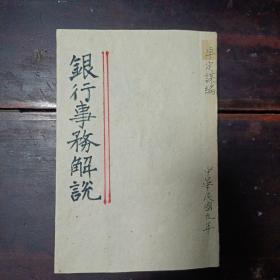 銀行事務解說
中華民國九年